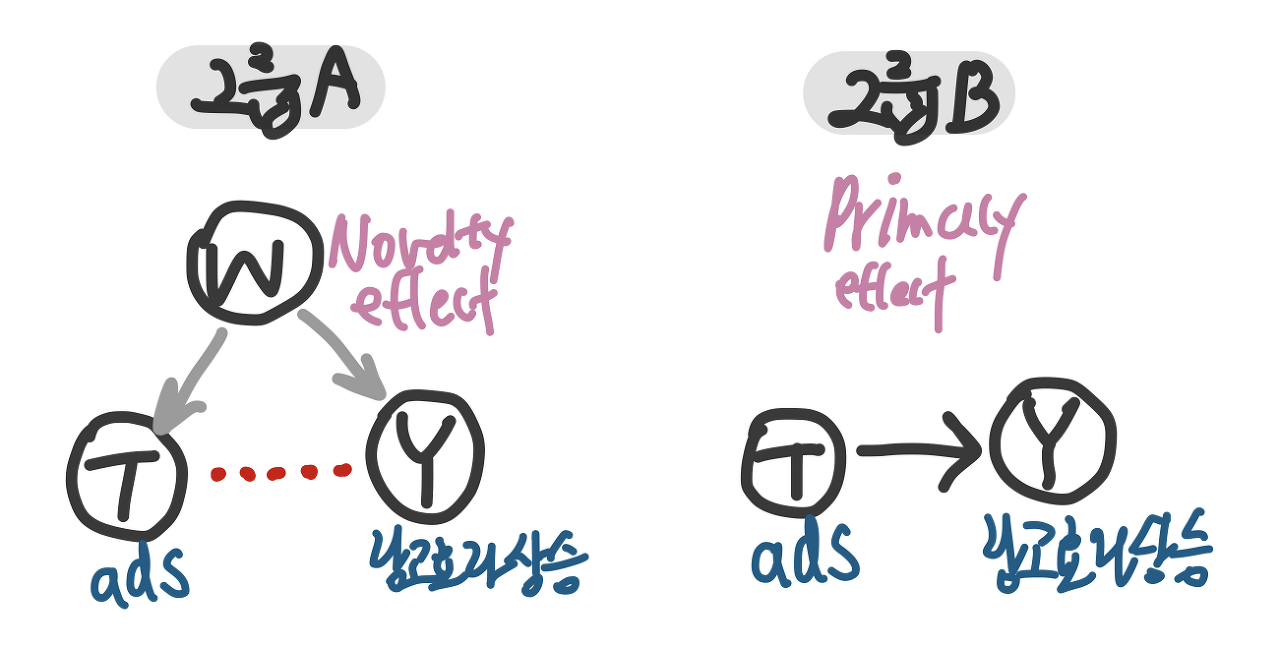 그룹 A
W
Novelty
effect
T
Y
ads
광고효과상승
그룹 B
Primacy
effect
T
Y
ads
광고효과상승